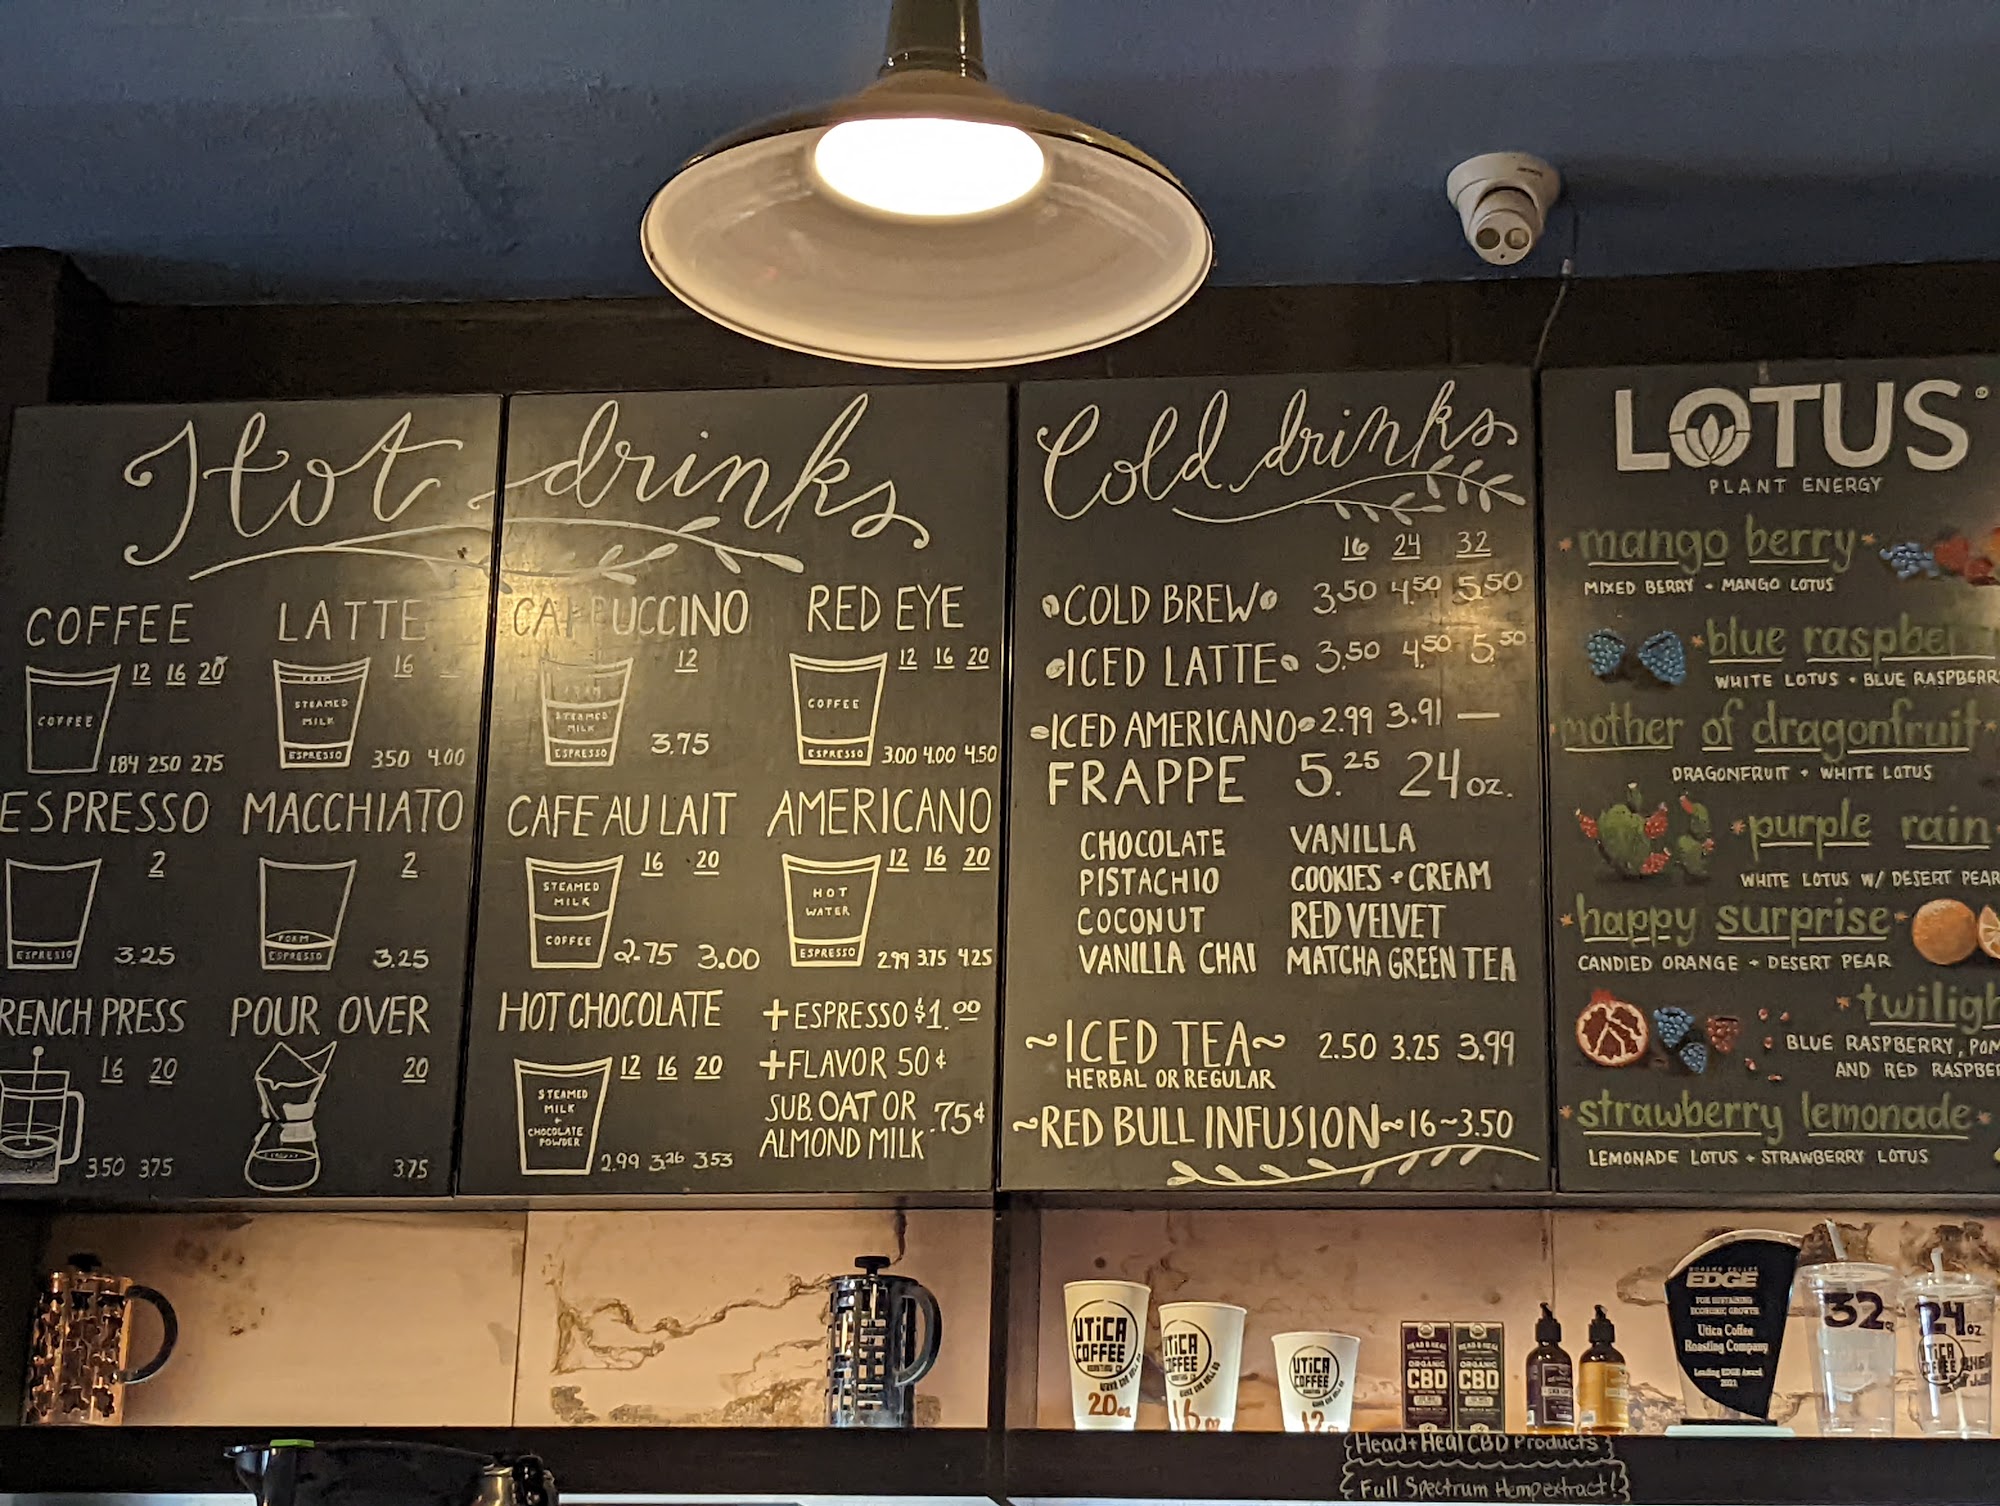 Hot drinks
COFFEE
12 16 20
COFFEE
1.84 2.50 2.75
LATTE
16
FOAM
STEAMED
MILK
ESPRESSO
3.50 4.00
ESPRESSO
2
ESPRESSO
3.25
MACCHIATO
2
FOAM
ESPRESSO
3.25
RENCH PRESS
16 20
3.50 3.75
POUR OVER
20
3.75
CAPPUCCINO
12
FOAM
STEAMED
MILK
ESPRESSO
3.75
RED EYE
12 16 20
COFFEE
ESPRESSO
3.00 4.00 4.50
CAFE AU LAIT
16 20
STEAMED
MILK
COFFEE
2.75 3.00
AMERICANO
12 16 20
HOT
WATER
ESPRESSO
2.99 3.75 4.25
HOT CHOCOLATE
12 16 20
STEAMED
MILK
+
CHOCOLATE
POWDER
2.99 3.26 3.53
+ESPRESSO $1.00
+FLAVOR 50¢
SUB. OAT OR
ALMOND MILK .75¢
Cold drinks
16 24 32
COLD BREW 3.50 4.50 5.50
ICED LATTE 3.50 4.50 5.50
ICED AMERICANO 2.99 3.91 —
FRAPPE 5.25 24oz.
CHOCOLATE VANILLA
PISTACHIO COOKIES + CREAM
COCONUT RED VELVET
VANILLA CHAI MATCHA GREEN TEA
~ICED TEA~ 2.50 3.25 3.99
HERBAL OR REGULAR
~RED BULL INFUSION~16~3.50
LOTUS
PLANT ENERGY
*mango berry*
MIXED BERRY + MANGO LOTUS
*blue raspber
WHITE LOTUS + BLUE RASPBERR
mother of dragonfruit*
DRAGONFRUIT + WHITE LOTUS
*purple rain*
WHITE LOTUS W/ DESERT PEAR
*happy surprise*
CANDIED ORANGE + DESERT PEAR
*twiligh
BLUE RASPBERRY, POM
AND RED RASPBE
*strawberry lemonade*
LEMONADE LOTUS + STRAWBERRY LOTUS
UTICA
COFFEE
ROASTING CO.
20oz
UTICA
COFFEE
16oz
UTICA
COFFEE
12oz
HEAD & HEAL
ORGANIC
CBD
HEAD & HEAL
ORGANIC
CBD
MOHAWK VALLEY
EDGE
FOR SUSTAINING
ECONOMIC GROWTH
Utica Coffee
Roasting Company
Leading EDGE Award
2021
32oz
24oz
UTICA
COFFEE
Head+Heal CBD Products
Full Spectrum Hemp extract!